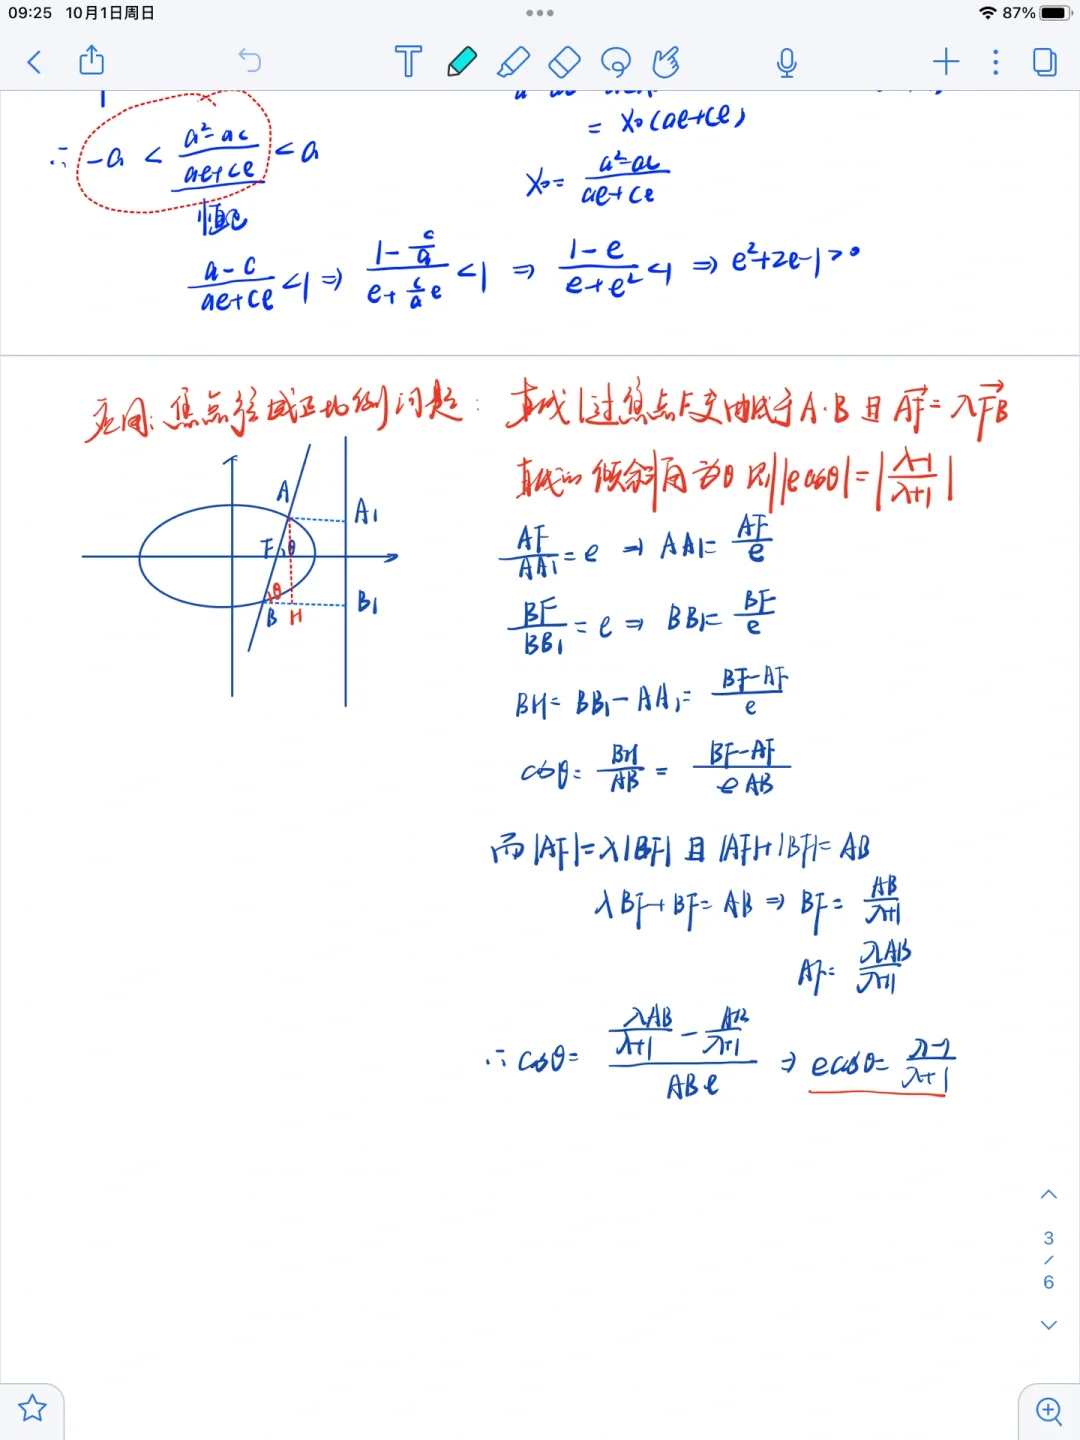 09:25 10月1日周日
87%
= x₀(ae+ce)
∴ -a < (a²-ac)/(ae+ce) < a
x₀ = (a²-ac)/(ae+ce)
恒
(a-c)/(ae+ce) < 1 ⇒ (1-c/a)/(e+(c/a)e) < 1 ⇒ (1-e)/(e+e²) < 1 ⇒ e²+2e-1>0
应用: 焦点弦成正比例问题: 直线l过焦点F交曲线于A·B 且 AF→=λFB→
直线的倾斜角为θ 则|ecosθ|=|(λ-1)/(λ+1)|
A
A₁
F
θ
θ
B
H
B₁
AF/AA₁ = e ⇒ AA₁ = AF/e
BF/BB₁ = e ⇒ BB₁ = BF/e
BH = BB₁ - AA₁ = (BF-AF)/e
cosθ = BH/AB = (BF-AF)/(eAB)
而|AF|=λ|BF| 且 |AF|+|BF|=AB
λBF+BF=AB ⇒ BF = AB/(λ+1)
AF = λAB/(λ+1)
∴ cosθ = (λAB/(λ+1) - AB/(λ+1))/(ABe) ⇒ ecosθ = (λ-1)/(λ+1)
3
/
6